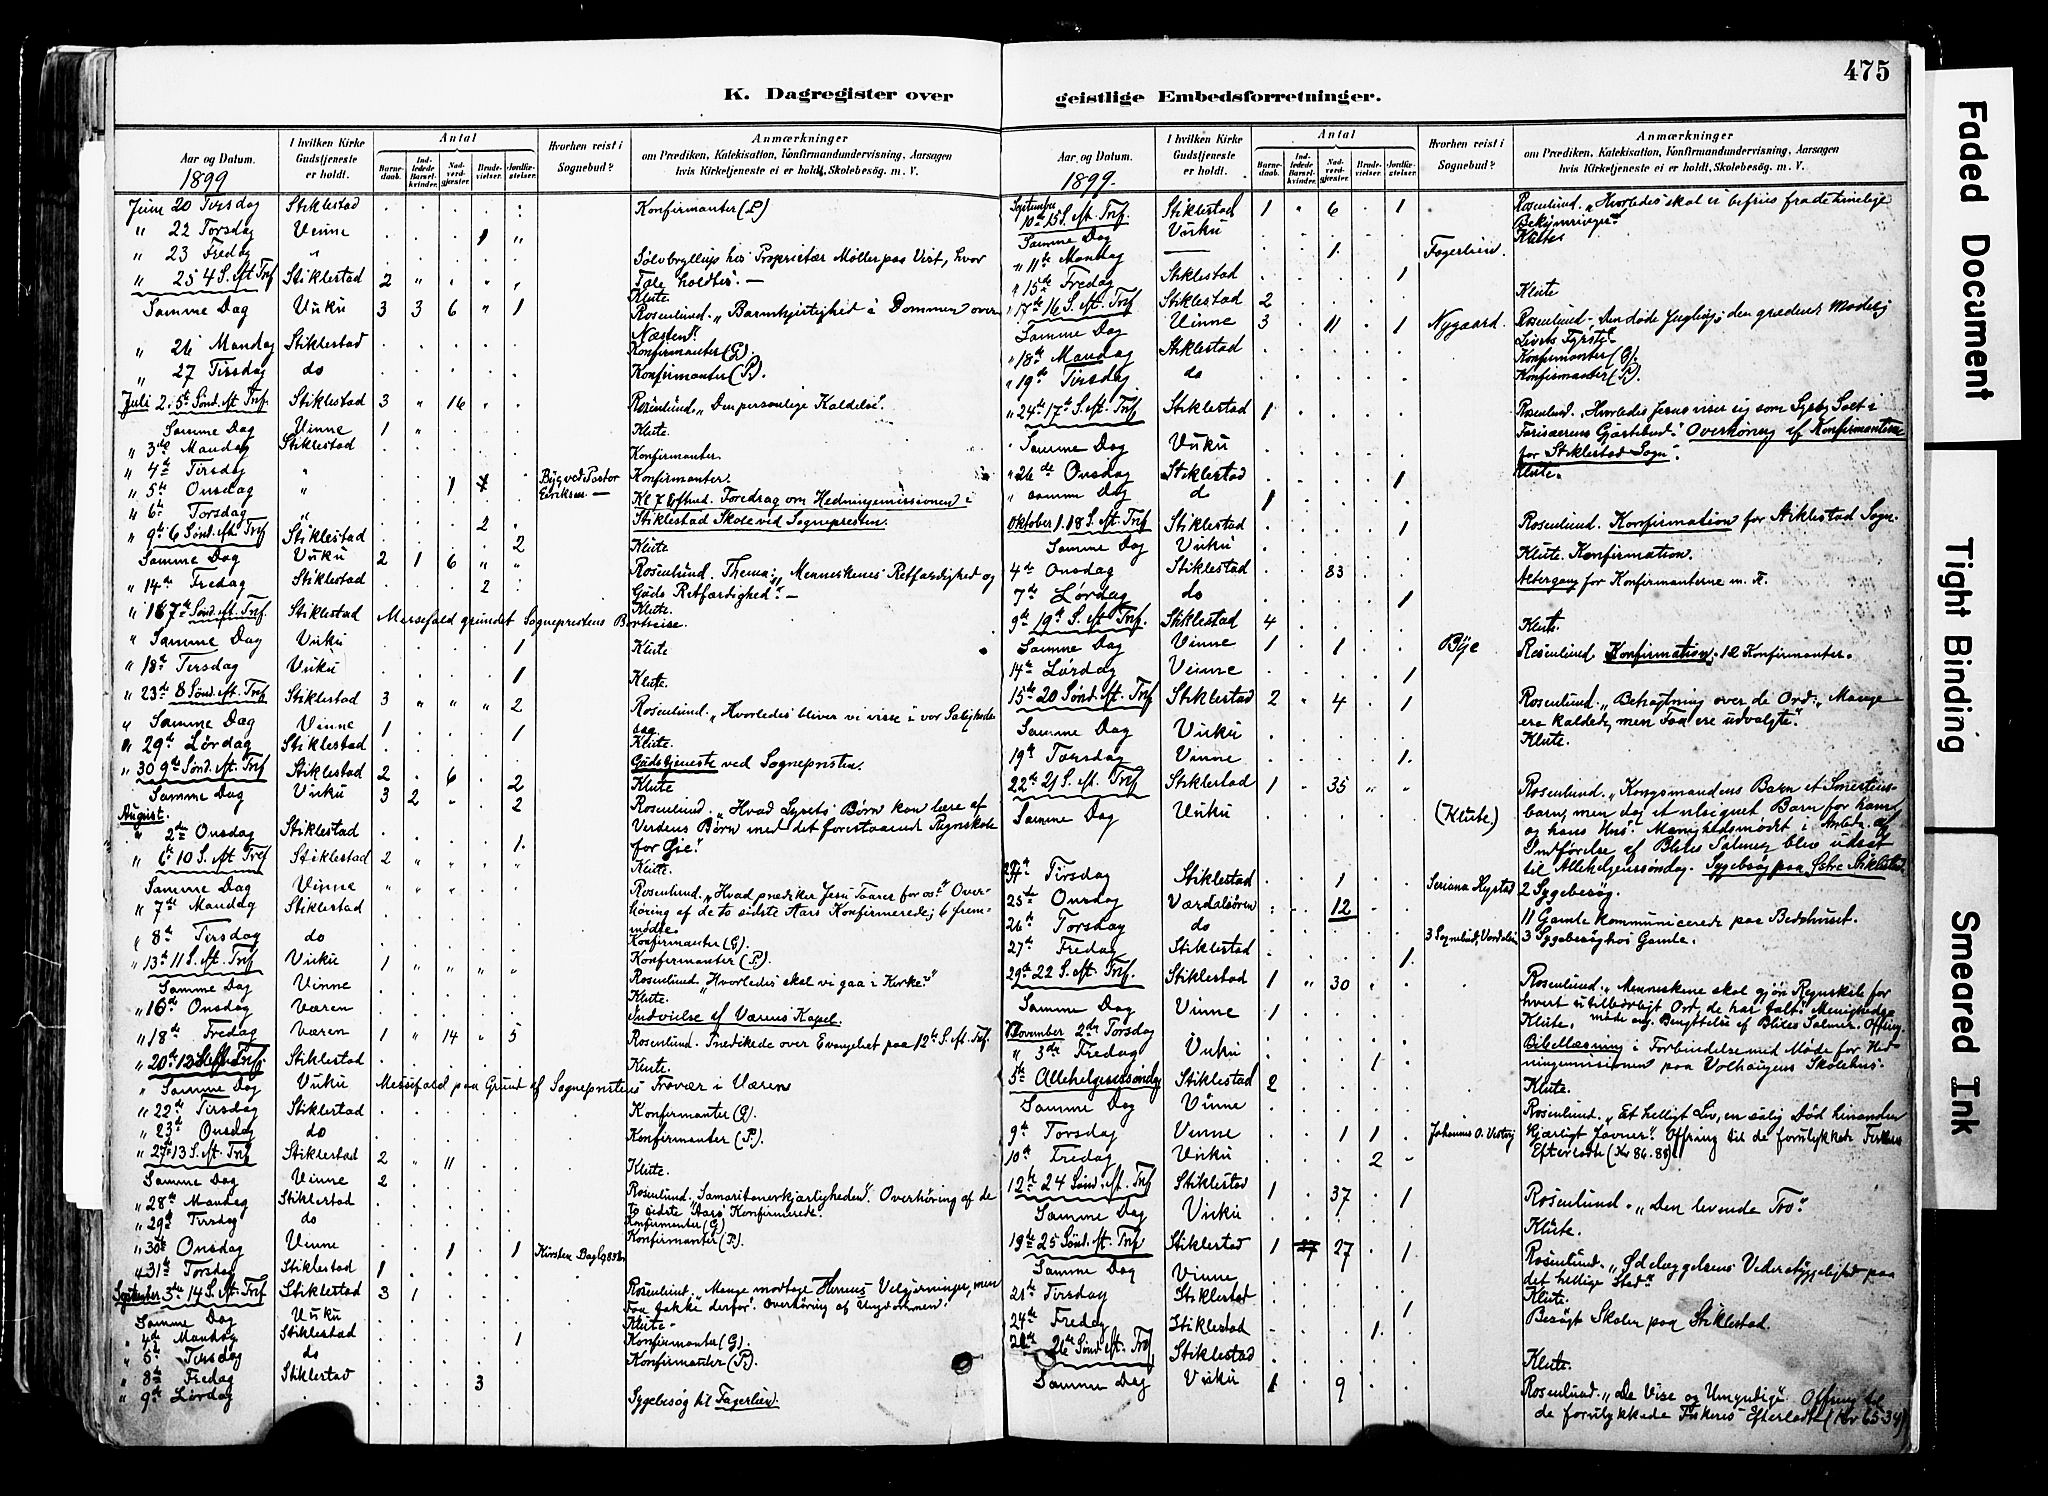 475
K. Dagregister over
Aar og Datum.
1899
I hvilken Kirke Gudstjeneste er holdt.
Antal
Barnedaab.
Indledede Barselkvinder.
Nadverdgjæster.
Brudevielser.
Jordfæstelser.
Hvorhen reist i Sognebud?
Anmærkninger
om Prædiken, Katekisation, Konfirmandundervisning, Aarsagen
hvis Kirketjeneste ei er holdt, Skolebesøg. m. V.
Juni 20 Tirsdag Stiklestad Konfirmanter (P)
" 22 Torsdag Vinne 1 "
" 23 Fredag " Sølvbryllup hos Proprietær Møller paa Vist, hvor
" 25 4 S. eft. Tref Stiklestad 2 " " " " Tale holdtes. —
Klüte.
Samme Dag Vuku 3 3 6 " 1 Rosenlund. „Barmhjertighed i Dommen over
Næsten."
" 26 Mandag Stiklestad Konfirmanter (G).
" 27 Tirsdag do Konfirmanter (P).
Juli 2. 5te Sønd. eft Tref. Stiklestad 3 " 16 Rosenlund. „Den personlige Kaldelse".
Samme Dag Vinne 1 " Klüte.
" 3die Mandag Stiklestad Konfirmanter.
" 4de Tirsdag " Konfirmanter.
" 5te Onsdag " 1 Byg ved Pastor Eriksen — Kl 7 Efthd. Foredrag om Hedningemissionen i
" 6te Torsdag " 2 Stiklestad Skole ved Sognepresten.
" 9de 6 Sønd. eft. Tref Stiklestad 2 Klüte
Samme Dag Vuku 2 1 6 " " Rosenlund. Thema: „Menneskenes Retfærdighed og
" 14de Fredag Stiklestad 2 Guds Retfærdighed". —
Klüte.
" 16 7de Sønd. eft. Tref. Stiklestad Messefald grundet Sogneprestens Bortreise.
" Samme Dag Vuku 1 Klüte
" 18de Tirsdag Vuku 1
Klüte.
" 23de 8 Sønd. eft. Tref Stiklestad 3 " " " 2 Rosenlund. „Hvorledes bliver vi visse i vor Saligheds
Samme Dag Vinne 1 1 dag
" 29de Lørdag Stiklestad Klüte.
" 30 9de Sønd. eft. Tref Stiklestad 2 6 2 Gudstjeneste ved Sognepresten.
Samme Dag Vuku 3 2 " 2 Klüte
August
" 2den Onsdag Stiklestad Rosenlund. „Hvad Lysets Børn kan lære af
Verdens Børn med det forestaaende Regnskab
1. for Øie."
" 6te 10 S. eft Tref Stiklestad 2 " " " " Klüte.
Samme Dag Vinne " " " Rosenlund. „Hvad prædiker Jesu Taarer for os". Over-
" 7de Mandag Stiklestad høring af de to sidste Aars Konfirmerede; 6 frem-
mødte.
" 8de Tirsdag do Konfirmanter (G).
Konfirmanter (P).
" 13de 11 S. eft. Tref Vuku 1 " " " " Rosenlund. „Hvorledes skal vi gaa i Kirke?"
Samme Dag Vinne Klüte.
" 16de Onsdag Væren Indvielse af Værens Kapel.
" 18de Fredag Væren 1 " 14 " 5 Rosenlund. Prædikede over Evangeliet paa 12te S. eft. Tref.
" 20de 12 S. eft. Tref. Stiklestad Klüte.
" Samme Dag Vuku Messefald paa Grund af Sogneprestens Fravær i Væren
" 22de Tirsdag Stiklestad Konfirmanter (G).
" 23de Onsdag do Konfirmanter (P).
" 27de 13 S. eft. Tref Stiklestad 2 " 11 Klüte.
Samme Dag Vinne 2 Rosenlund. „Samaritanerkjærligheden". Overhøring af de
" 28de Mandag Stiklestad to sidste Aars Konfirmerede.
" 29de Tirsdag do Konfirmanter (G)
Konfirmanter (P).
" 30te Onsdag Vinne 1 1 Kirsten
" 31te Torsdag Stiklestad 1
September 3die 14 S. eft. Tref Stiklestad 3 1 Rosenlund. Mange modtage Herrens Velgjerninger, men
Faa takke derfor. Overhøring af Ungdommen.
Samme Dag Vuku Klüte.
" 4de Mandag Stiklestad 1 Konfirmanter (G)
" 5te Tirsdag do Konfirmanter (P).
" 8de Fredag Stiklestad 3
" 9de Lørdag Sygebesøg til Fagerlien.
geistlige Embedsforretninger.
Aar og Datum.
1899.
I hvilken Kirke Gudstjeneste er holdt.
Antal
Barnedaab.
Indledede Barselkvinder.
Nadverdgjæster.
Brudevielser.
Jordfæstelser.
Hvorhen reist i Sognebud?
Anmærkninger
om Prædiken, Katekisation, Konfirmandundervisning, Aarsagen
hvis Kirketjeneste ei er holdt, Skolebesøg. m. V.
September
10de 15 S. eft. Tref. Stiklestad 1 " 6 1 Rosenlund. „Hvorledes skal vi befries fra de timelige
Bekymringer"
Samme Dag Vuku Klüte
" 11te Mandag — 1. Fagerlien.
" 15de Fredag Stiklestad 1
" 17de 16 S. eft. Tref Stiklestad 2 Klüte
Samme Dag Vinne 3 11 1 Nygaard. Rosenlund. „Den døde Yngling, den grædende Moder og
Livets Fyrste".
" 18de Mandag Stiklestad Konfirmanter (G).
" 19de Tirsdag do Konfirmanter (P).
" 24de 17de S. eft. Tref Stiklestad 1 Rosenlund. „Hvorledes Jesus viser sig som
Farisæerens Gjæstebud". Overhøring af Konfirmanterne
Samme Dag Vuku for Stiklestad Sogn.
" 26de Onsdag Stiklestad 1 Klüte.
" samme Dag do 1
Oktober 1. 18 S. eft. Tref Stiklestad 1 Rosenlund. Konfirmation for Stiklestad Sogn.
Samme Dag Vuku Klüte. Konfirmation.
4de Onsdag Stiklestad 83 Altergang for Konfirmanterne m. Fl.
7de Lørdag do 1
9de 19de S. eft Tref. Stiklestad 4 Klüte.
Samme Dag Vinne 1 1 1 Bye Rosenlund. Konfirmation. 12 Konfirmanter.
14de Lørdag Vinne 1
15de 20 Sønd. eft. Tref Stiklestad 2 " 4 1 Rosenlund. „Betragtning over de Ord: „Mange
ere kaldede, men Faa ere udvalgte".
Samme Dag Vuku Klüte.
19de Torsdag Vinne 1.
22de 21 S. eft. Tref Stiklestad 1 35 " " Rosenlund. „Kongsmandens Barn et Smertens-
barn, men dog et velsignet Barn for ham
Samme Dag Vuku (Klüte.) og hans Hus". Menighedsmødet i Anledn. af
Indførelse af Blixes Salmer blev udsat
til Allehelgenssøndag. Sygebesøg paa Østre Stiklestad.
24de Tirsdag Stiklestad 1 Seriana 2 Sygebesøg.
25de Onsdag Værdalsøren 12 11 Gamle kommunicerede paa Bedehuset.
26de Torsdag do 3 Sognebud, Værdalsøren 3 Sygebesøg hos Gamle.
27de Fredag Stiklestad 1.
29de 22 S. eft Tref. Stiklestad 1 " 30 Rosenlund. „Menneskene skal gjøre Regnskab for
hvert utilbørligt Ord, de har talt." Menigheds-
Samme Dag Vinne 1 Klüte. møde ang. Benyttelse af Blixes Salmer. Offring.
November 2den Torsdag Bibellæsning i Forbindelse med Møde for Hed-
" 3die Fredag Vuku 1 ningemissionen paa Volhaugens Skolehus.
5te Allehelgenssøndag Stiklestad 2 Klüte.
Samme Dag Vinne Rosenlund. „Et helligt Liv, en salig Død hinanden
9de Torsdag Vinne 1 1 Johannes O. kjærligt favner". Offring til de forulykkede Fiskeres
10de Fredag Vuku 2 " Efterladte (Kr 86.88)
12te 24 Sønd. eft. Tref Stiklestad 1 37 1 Rosenlund. „Den levende Tro".
Samme Dag Vuku Klüte.
19de 25 Sønd. eft. Tref Stiklestad 1 27 27 1 Rosenlund. „Ødelæggelsens Vederstyggelighed paa
det hellige Sted".
Samme Dag Vinne Klüte.
21de Tirsdag Stiklestad Besøgt Skolen paa Stiklestad.
24de Fredag Stiklestad 1.
26de 26de Sønd. eft. Tref Stiklestad Klüte.
Samme Dag Vuku 1 9 Rosenlund. „De Vise og Umyndige". Offring til
de forulykkede Fiskeres Efterladte (Kr 65.34)
Faded Document
Tight Binding
Smeared Ink